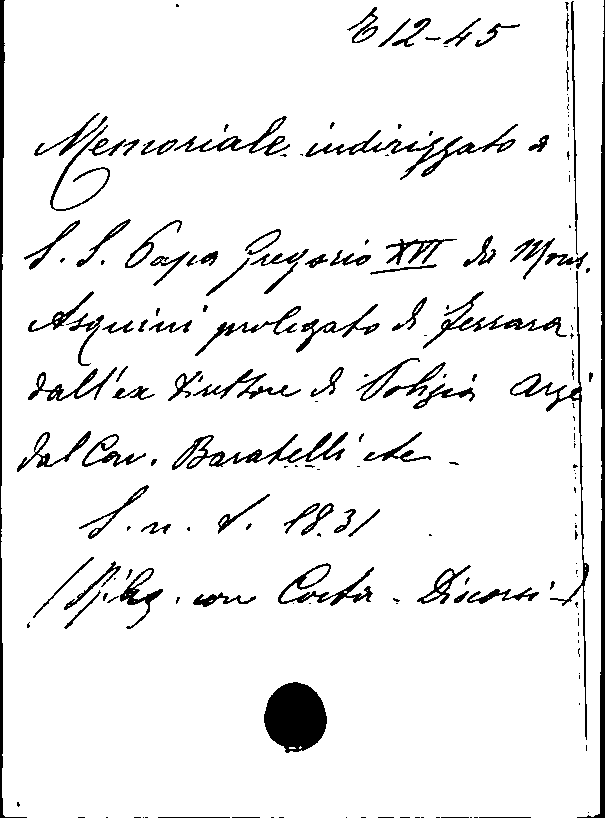 E 12-45
Memoriale indirizzato a
S. S. Papa Gregorio XVI da Mons.
Asquini prolegato di Ferrara
dall'ex Direttore di Polizia
dal Cav. Baratelli etc
S. n. t. 1831
(Rileg. con Costa - Discorsi -)